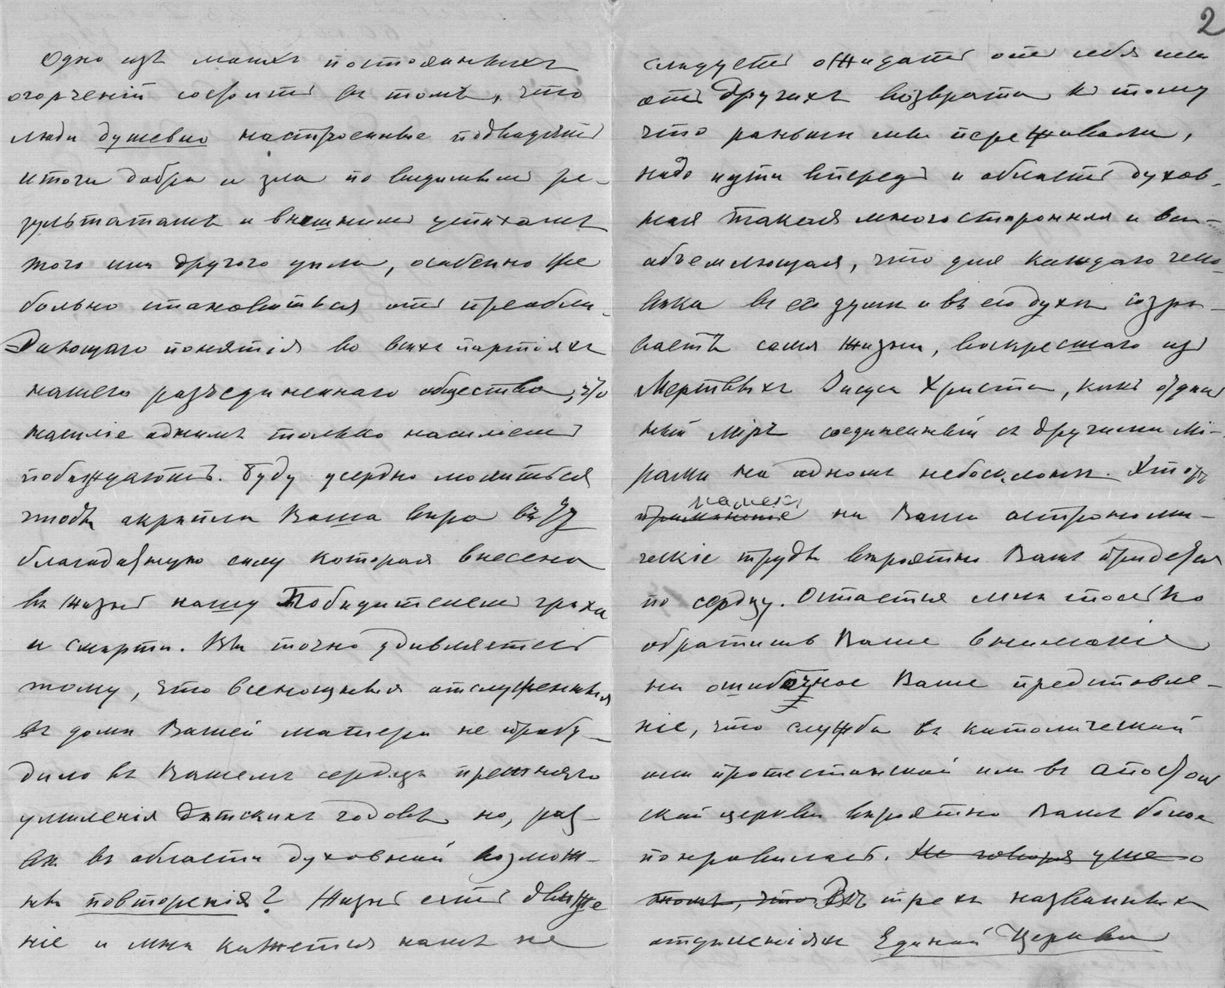 2
Одно изъ моихъ постоянныхъ
огорченій состоитъ въ томъ, что
люди душевно настроенные подводятъ
итоги добра и зла по видимымъ ре-
зультатамъ и внѣшнимъ успѣхамъ
того или другого дѣла, особенно же
больно становится отъ преобла-
дающаго понятія во всѣхъ партіяхъ
нашего разъединеннаго общества, что
насиліе однимъ только насиліемъ
побѣждаютъ. Буду усердно молиться
чтобъ окрѣпла Ваша вѣра въ ту
благодатную силу которая внесена
въ жизнь нашу Побѣдителемъ грѣха
и смерти. Вы точно удивляетесь
тому, что всенощныя отслуженныя
въ домѣ Вашей матери не пробу-
дило въ Вашемъ сердцѣ прежняго
умиленія дѣтскихъ годовъ но, раз-
вѣ въ области духовной возмож-
ны повторенія? Жизнь есть движе
ніе и мнѣ кажется намъ не
слѣдуетъ ожидать отъ себя или
отъ другихъ возврата к тому
что раньше мы переживали,
надо идти впередъ и область духов-
ная такая многосторонняя и все-
объемлющая, что для каждаго чело-
вѣка въ его душѣ и въ его духѣ созрѣ-
ваетъ самъ жизни, воскресшаго изъ
Мертвыхъ Іисуса Христа, какъ отдѣль
ный міръ соединенный съ другими мі-
рами на одномъ небосклонѣ. Этотъ
намекъ
на Ваши астрономи-
ческіе труды вѣроятно Вамъ придется
по сердцу. Остается мнѣ только
обратить Ваше вниманіе
на ошибочное Ваше представле-
ніе, что служба въ католической
или протестанской или въ апостол
ской церкви вѣроятно Вамъ болѣе
понравилась. Не говоря уже о
томъ, что Въ трехъ названныхъ
отдѣленіяхъ Единой Церкви